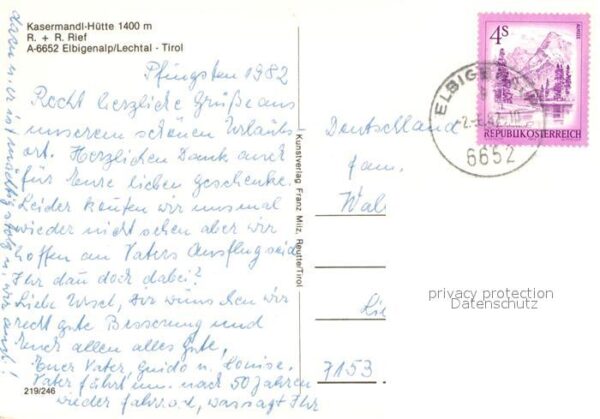 Kasermandl-Hütte 1400 m
R. + R. Rief
A-6652 Elbigenalp/Lechtal - Tirol
Pfingsten 1982
Recht herzliche Grüße aus
unserem schönen Urlaubs
ort. Herzlichen Dank auch
für Eure lieben geschenke.
Leider konten wir uns mal
wieder nicht sehen aber wir
hoffen an Vaters Ausflug seid
Ihr dan doch dabei?
Liebe Ursel, Dir wünschen wir
recht gute Besserung und
Euch allen alles Gute,
Euer Vater, guido u. Louise.
Vater fährt, nach 50 Jahren
wieder fahrrad, was sagt Ihr
dazu u. er ist mächtig stolz u. wir auch!
219/246
Kunstverlag Franz Milz, Reutte/Tirol
4s
REPUBLIK ÖSTERREICH
6652
Deutschland
Fam.
7153
privacy protection
Datenschutz